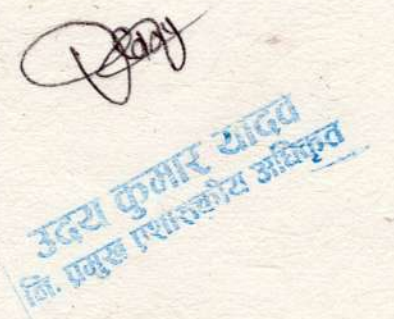 उदय कुमार यादव
नि. प्रमुख प्रशासकीय अधिकृत